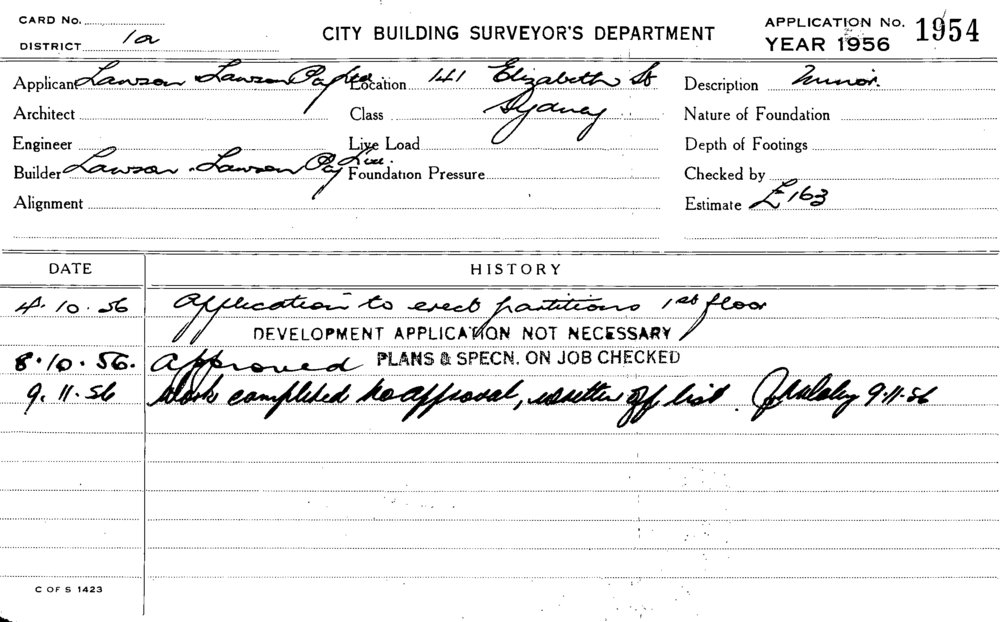 CARD No.
DISTRICT 1a
CITY BUILDING SURVEYOR'S DEPARTMENT
APPLICATION No. 1954
YEAR 1956
Applicant Lawson Lawson Pty Location 141 Elizabeth St Description Minor.
Architect Class Sydney Nature of Foundation
Engineer Live Load Depth of Footings
Builder Lawson. Lawson Pty Foundation Pressure Checked by
Alignment Estimate £163
DATE HISTORY
4.10.56 Application to erect partitions 1st floor
DEVELOPMENT APPLICATION NOT NECESSARY
8.10.56. Approved PLANS & SPECN. ON JOB CHECKED
9.11.56 Work completed to approval, written off list. 9.11.56
C OF S 1423